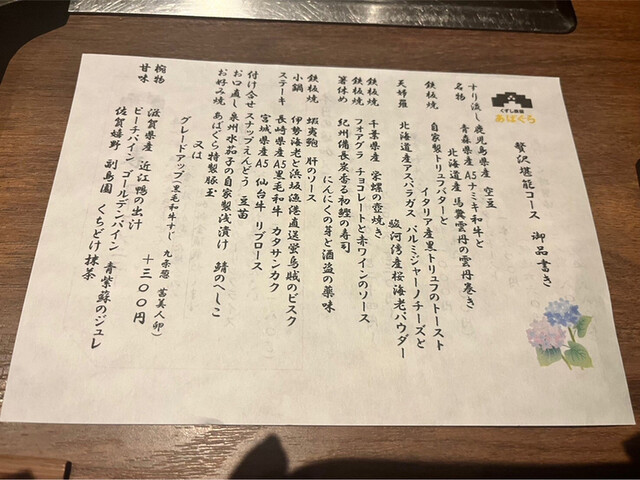 くずし鉄板
あばぐら
贅沢堪能コース 御品書き
すり流し 鹿児島県産 空豆
名物 青森県産 A5ナミキ和牛と
北海道産 馬糞雲丹の雲丹巻き
鉄板焼 自家製トリュフバターと
イタリア産黒トリュフのトースト
天婦羅 北海道産アスパラガス パルミジャーノチーズと
駿河湾産桜海老パウダー
鉄板焼 千葉県産 栄螺の壺焼き
鉄板焼 フォアグラ チョコレートと赤ワインのソース
箸休め 紀州備長炭香る初鰹の寿司
にんにくの芽と酒盗の薬味
鉄板焼 蝦夷鮑 肝のソース
小鍋 伊勢海老と浜坂漁港直送蛍烏賊のビスク
ステーキ 長崎県産A5黒毛和牛 カタサンカク
宮城県産A5 仙台牛 リブロース
付け合せ スナップえんどう 豆苗
お口直し 泉州水茄子の自家製浅漬け 鯖のへしこ
お好み焼 あばぐら特製豚玉
又は
グレードアップ(黒毛和牛すじ 九条葱 蒼美人卵)
+300円
椀物 滋賀県産 近江鴨の出汁
甘味 ピーチパイン ゴールデンパイン 青紫蘇のジュレ
佐賀嬉野 副島園 くちどけ抹茶